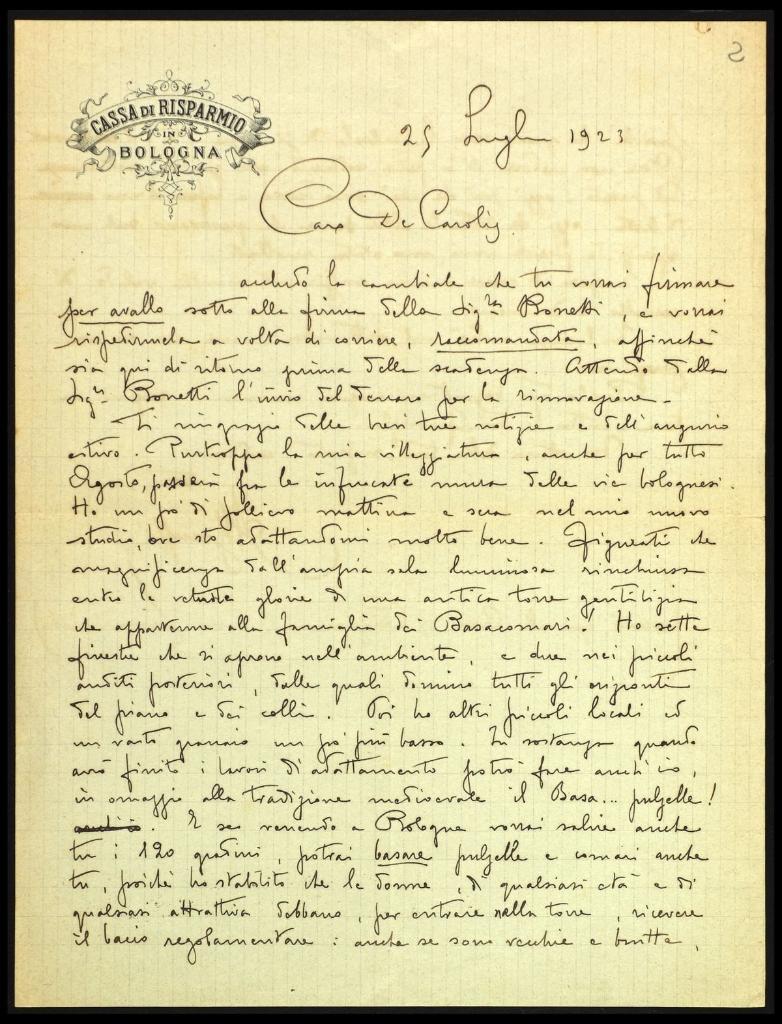 2
CASSA DI RISPARMIO
IN
BOLOGNA
25 Luglio 1923
Caro De Carolis,
accludo la cambiale che tu vorrai firmare
per avallo sotto alla firma della Sig.ra Bonetti, e vorrai
rispedirmela a volta di corriere, raccomandata, affinché
sia qui di ritorno prima della scadenza. Attendo dalla
Sig.ra Bonetti l'invio del denaro per la rinnovazione.-
Ti ringrazio delle brevi tue notizie e dell'augurio
estivo. Purtroppo la mia villeggiatura, anche per tutto
Agosto, passerà fra le infuocate mura delle vie bolognesi.
Ho un po' di sollievo mattina e sera nel mio nuovo
studio, ove sto adattandomi molto bene. Figurati che
magnificenza dall'ampia sala luminosa rinchiusa
entro le vetuste glorie di una antica torre gentilizia
che appartenne alla famiglia dei Basacomari! Ho sette
finestre che si aprono nell'ambiente, e due nei piccoli
anditi posteriori, dalle quali domino tutti gli orizzonti
del piano e dei colli. Poi ho altri piccoli locali ed
un vasto granaio un po' più basso. In sostanza quando
avrò finito i lavori di adattamento potrò fare anch'io,
in omaggio alla tradizione medioevale il Basa... pulzelle!
E se venendo a Bologna vorrai salire anche
tu i 120 gradini, potrai basare pulzelle e comari anche
tu, poiché ho stabilito che le donne, di qualsiasi età e di
qualsiasi attrattiva debbano, per entrare nella torre, ricevere
il bacio regolamentare: anche se sono vecchie e brutte,